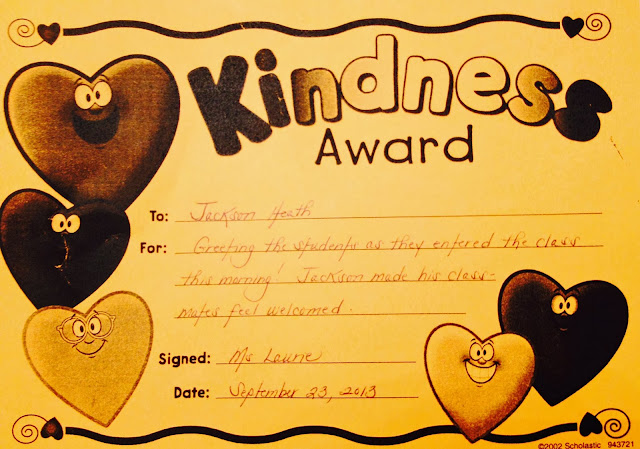 Kindness
Award
To: Jackson Heath
For: Greeting the students as they entered the class
this morning! Jackson made his class-
mates feel welcomed.
Signed: Ms Laurie
Date: September 23, 2013
©2002 Scholastic 943721